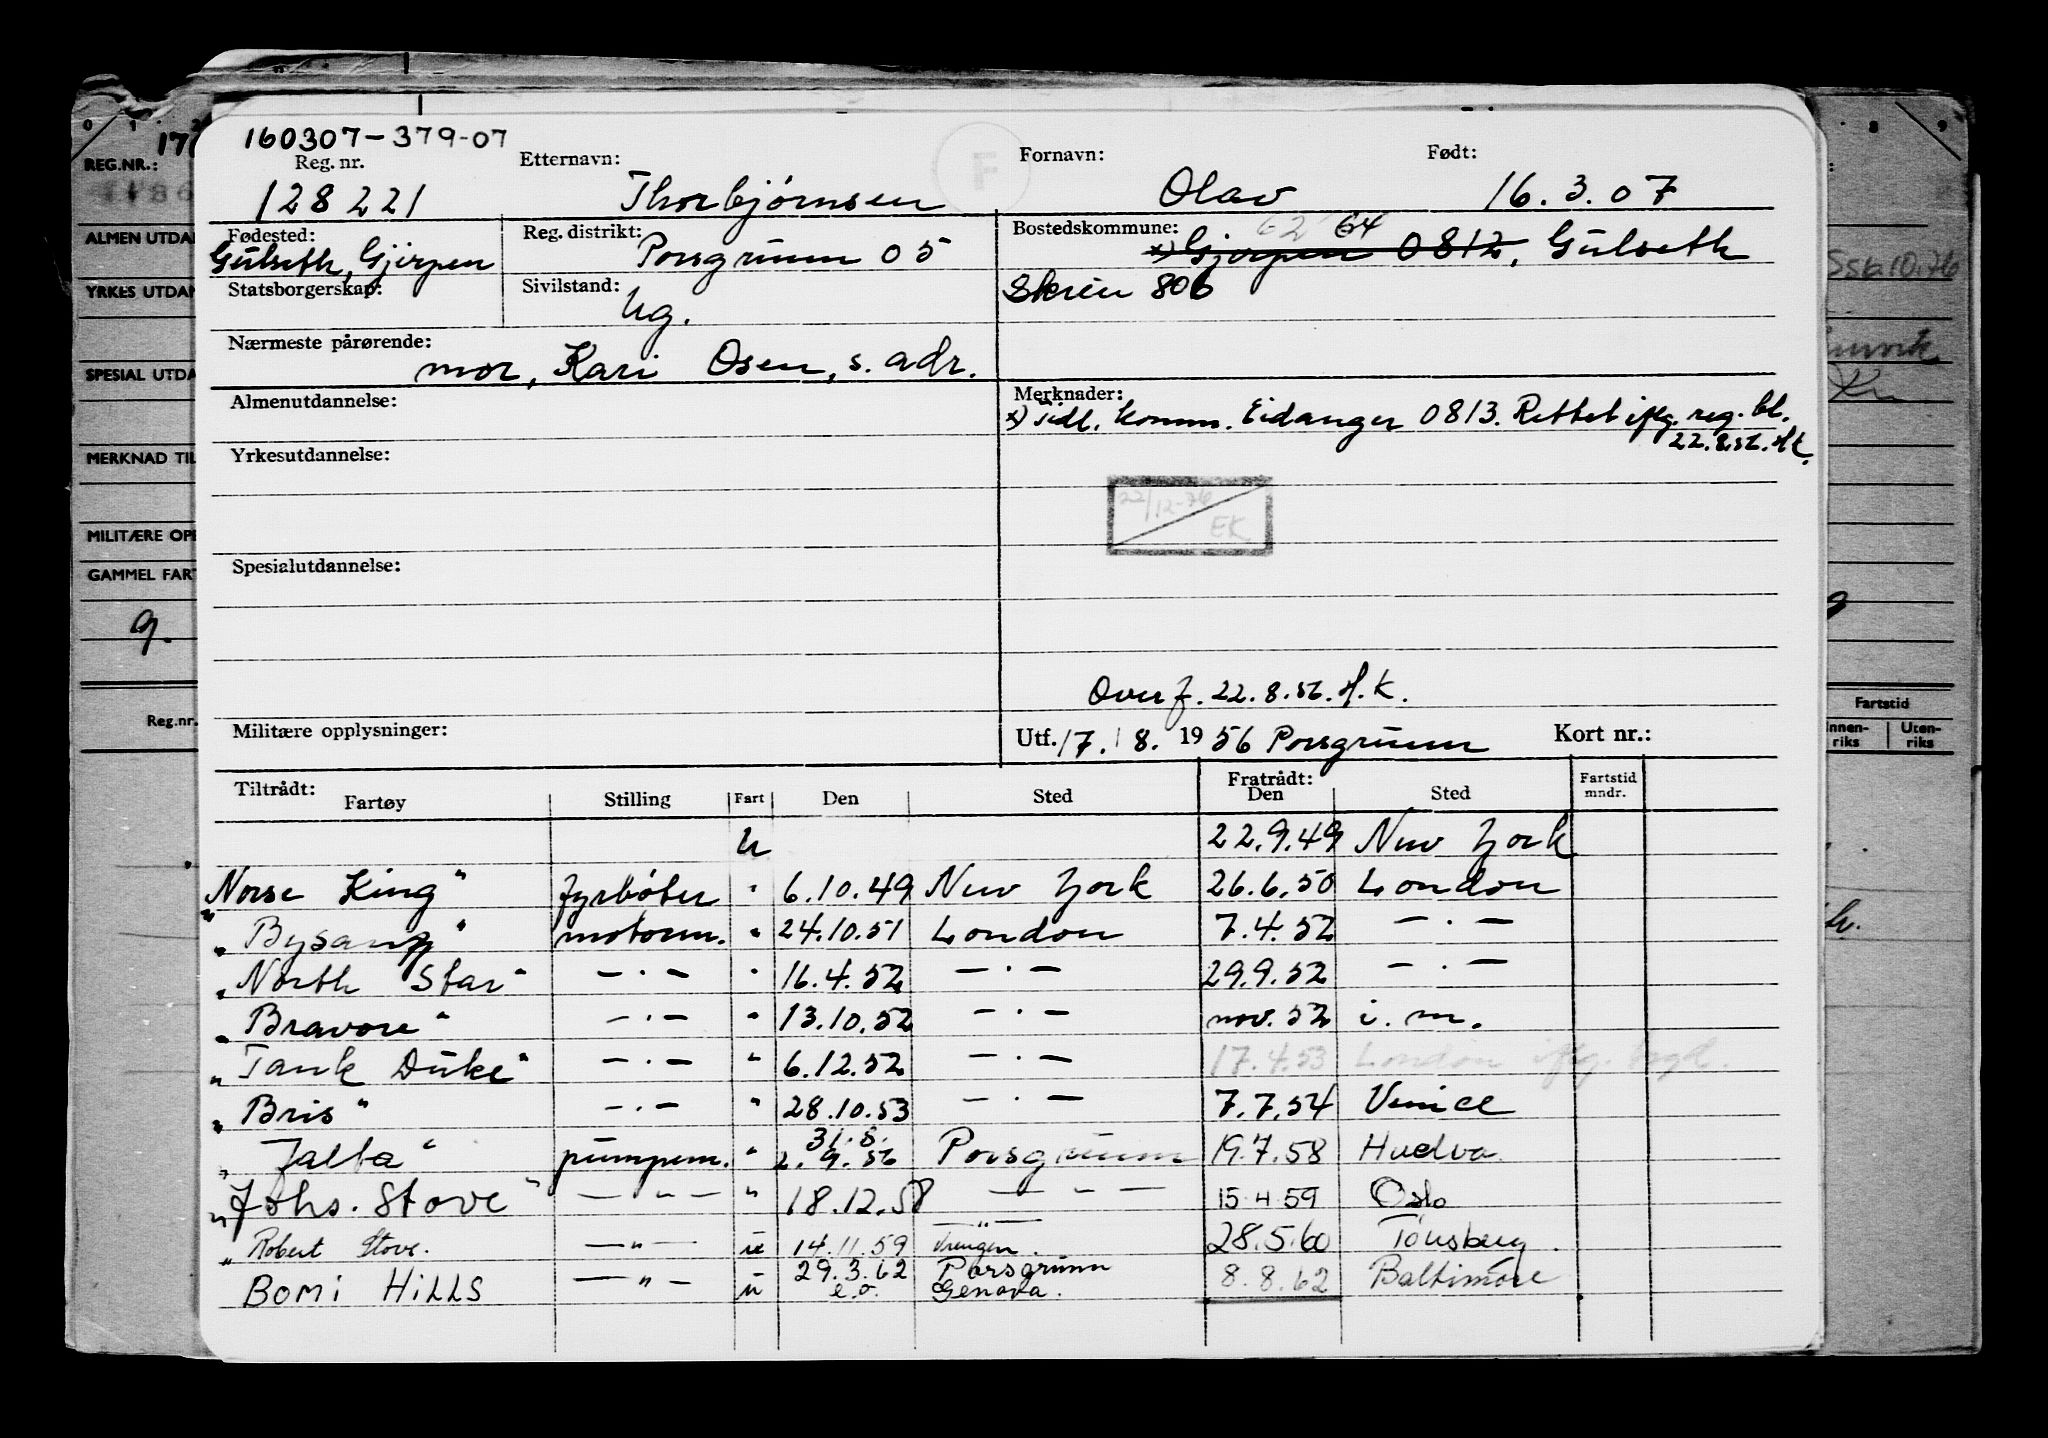 160307-379-07
Reg. nr. Etternavn: Fornavn: Født:
128221 Thorbjørnsen Olav 16.3.07
F
Fødested: Reg. distrikt: Bostedskommune: 62 64
Gulseth, Gjerpen Porsgrunn 05 x) Gjerpen 0812, Gulseth
Statsborgerskap: Sivilstand: Skien 806
Ug.
Nærmeste pårørende:
mor, Kari Osen, s. adr.
Almenutdannelse: Merknader:
x) Tidl. komm. Eidanger 0813. Rettet iflg. reg. bl.
22.8.56. H.K.
Yrkesutdannelse:
22/12-76
EK
Spesialutdannelse:
Overf. 22.8.56. H.K.
Militære opplysninger: Utf. 17. 8. 1956 Porsgrunn Kort nr.:
Tiltrådt: Fratrådt: Fartstid
Fartøy Stilling Fart Den Sted Den Sted mndr.
U 22.9.49 New York
"Norse King" fyrbøter " 6.10.49 New York 26.6.50 London
"Bysanz" motorm. " 24.10.51 London 7.4.52 — . —
"North Star" — . — " 16.4.52 — . — 29.9.52 — . —
"Bravore" — . — " 13.10.52 — . — nov. 52 i. m.
"Tank Duke" — . — " 6.12.52 — . — 17.4.53 London iflg.
"Bris" — . — " 28.10.53 — . — 7.7.54 Venice
31.8.
"Jalta" pumpem. " 2.9.56 Porsgrunn 19.7.58 Huelva
"Johs. Stove" — " — " 18.12.58 — " — 15.4.59 Oslo
— " —
"Robert Stove. — " — u 14.11.59 Vrengen. 28.5.60 Tønsberg.
BOMI HILLS — " — u 29.3.62 Porsgrunn 8.8.62 Baltimore
e.o. Genova.
0 1
REG.NR.:
ALMEN UTDA
YRKES UTDA
SPESIAL UTDA
MERKNAD TIL
MILITÆRE OPP
GAMMEL FART
9.
Reg.nr.
8 9
Fartstid
Innen-riks Uten-riks